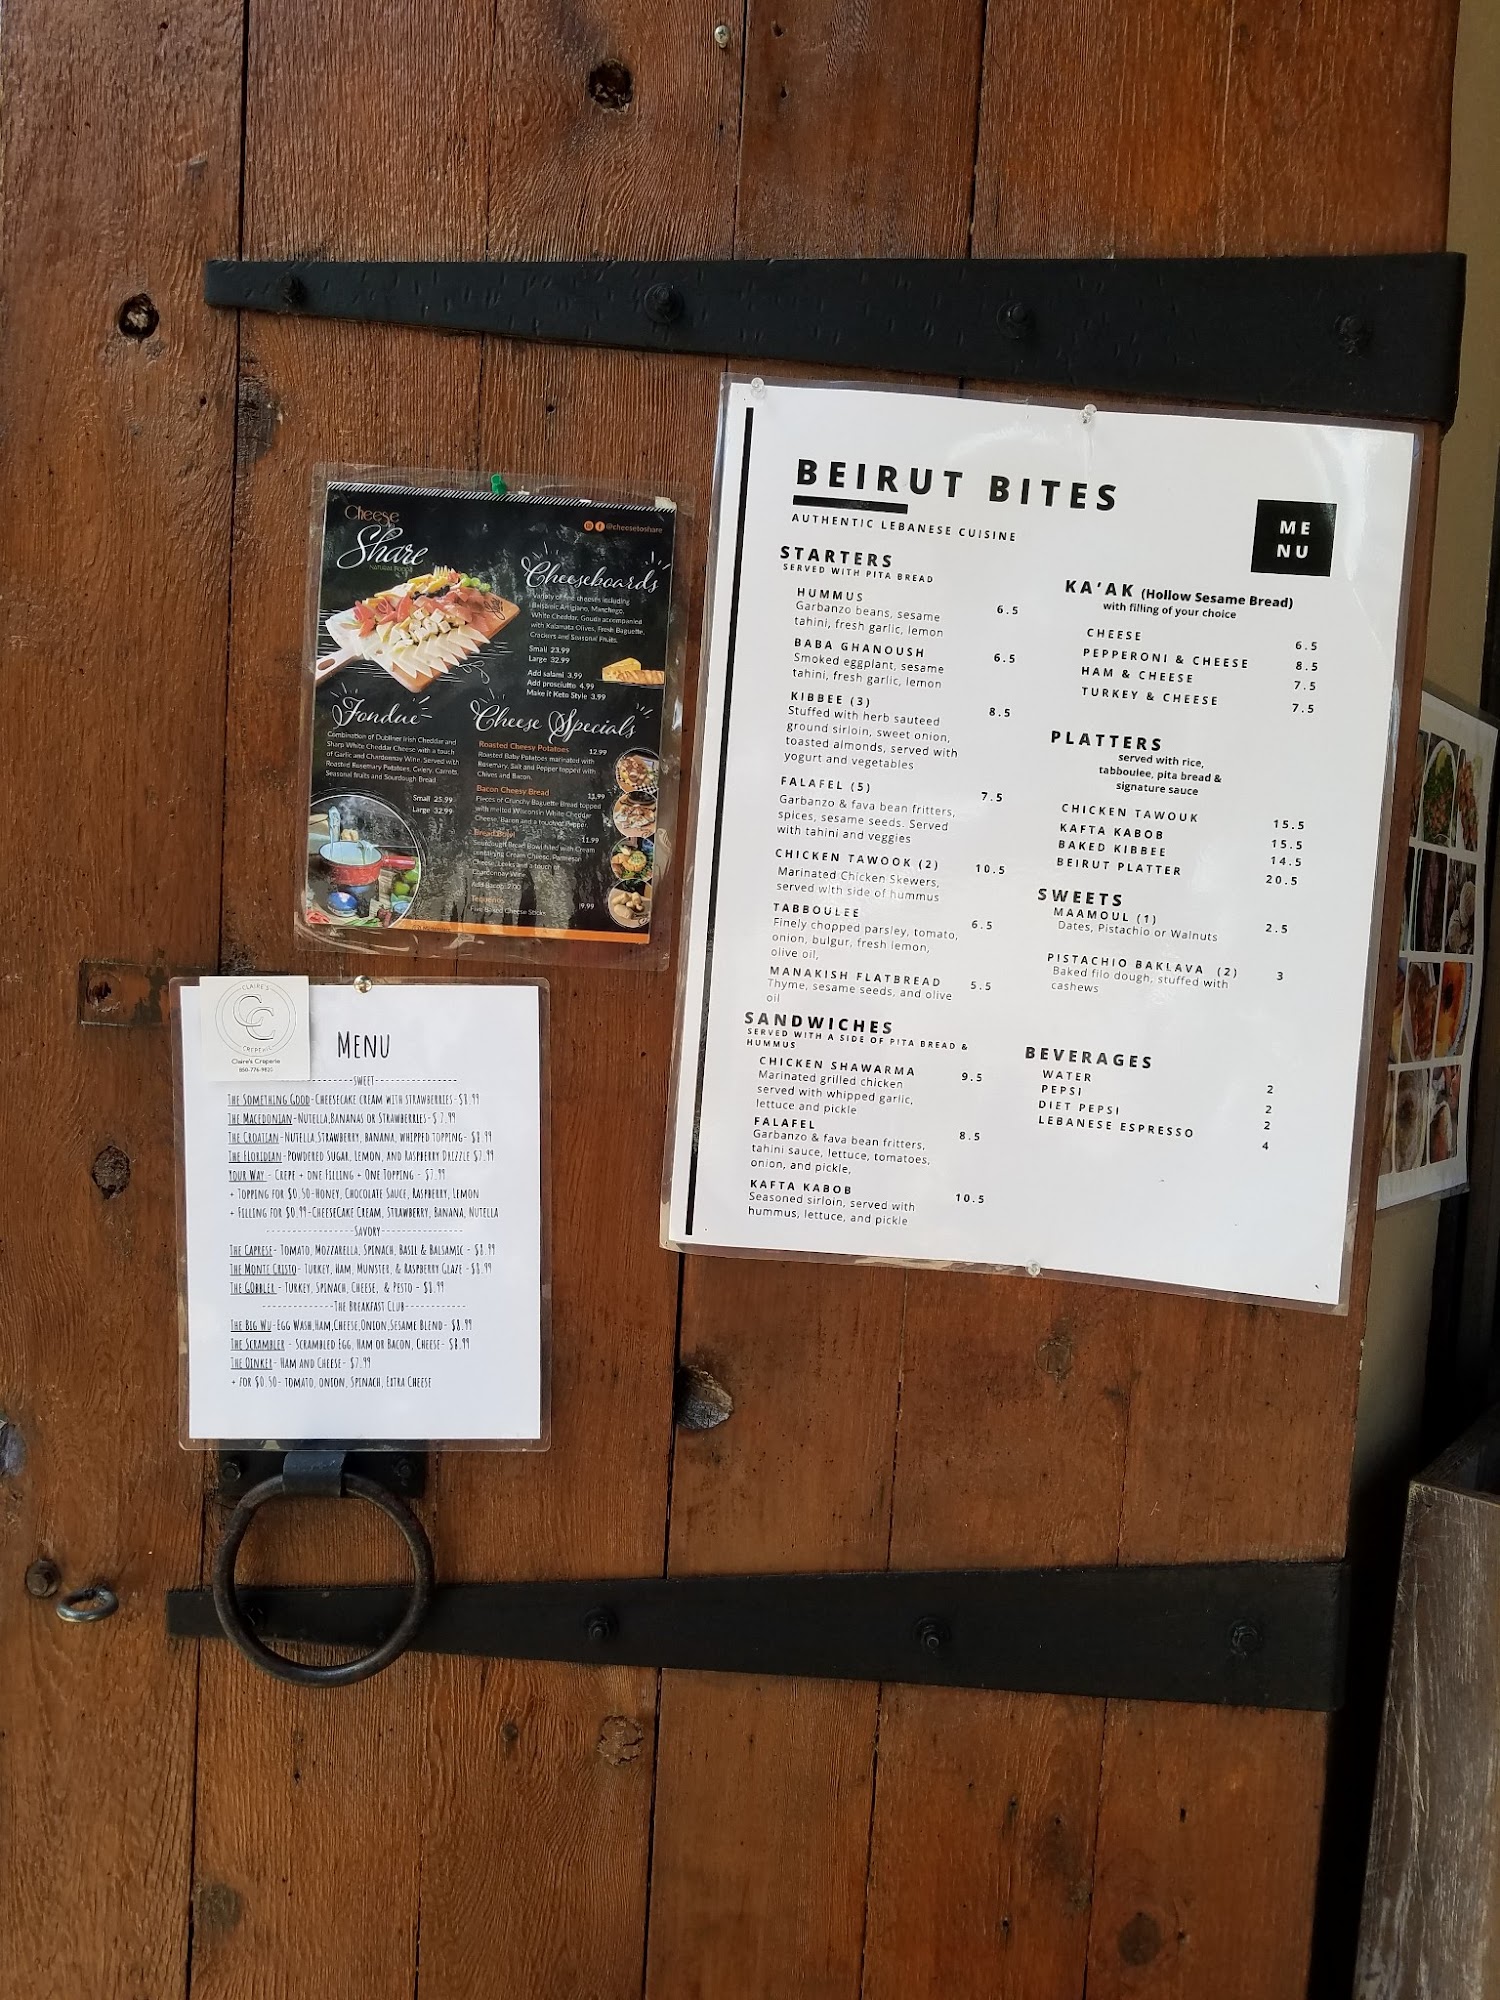 Cheese
Share
NATURAL FOODS
@cheesetoshare
Cheeseboards
Variety of fine cheeses including
Balsamic Artigiano, Manchego,
White Cheddar, Gouda accompanied
with Kalamata Olives, Fresh Baguette,
Crackers and Seasonal Fruits.
Small 23.99
Large 32.99
Add salami 3.99
Add prosciutto 4.99
Make it Keto Style 3.99
Fondue
Combination of Dubliner Irish Cheddar and
Sharp White Cheddar Cheese with a touch
of Garlic and Chardonnay Wine. Served with
Roasted Rosemary Potatoes, Celery, Carrots,
Seasonal fruits and Sourdough Bread
Small 25.99
Large 32.99
Cheese Specials
Roasted Cheesy Potatoes 12.99
Roasted Baby Potatoes marinated with
Rosemary, Salt and Pepper topped with
Chives and Bacon.
Bacon Cheesy Bread 11.99
Pieces of Crunchy Baguette Bread topped
with melted Wisconsin White Cheddar
Cheese, Bacon and a touch of Pepper.
Bread Bowl 11.99
Sourdough Bread Bowl filled with Cream
containing Cream Cheese, Parmesan
Cheese, Leeks and a touch of
Chardonnay Wine.
Add Bacon 2.00
Tequenos 9.99
Five Baked Cheese Sticks
CLAIRE'S
CC
CREPERIE
Claire's Creperie
860-776-9825
MENU
SWEET
THE SOMETHING GOOD-CHEESECAKE CREAM WITH STRAWBERRIES-$8.99
THE MACEDONIAN-NUTELLA,BANANAS OR STRAWBERRIES-$ 7.99
THE CROATIAN-NUTELLA,STRAWBERRY, BANANA, WHIPPED TOPPING- $8.99
THE FLORIDIAN-POWDERED SUGAR, LEMON, AND RASPBERRY DRIZZLE $7.99
YOUR WAY - CREPE + ONE FILLING + ONE TOPPING - $7.99
+ TOPPING FOR $0.50-HONEY, CHOCOLATE SAUCE, RASPBERRY, LEMON
+ FILLING FOR $0.99-CHEESECAKE CREAM, STRAWBERRY, BANANA, NUTELLA
SAVORY
THE CAPRESE- TOMATO, MOZZARELLA, SPINACH, BASIL & BALSAMIC - $8.99
THE MONTE CRISTO- TURKEY, HAM, MUNSTER, & RASPBERRY GLAZE -$8.99
THE GOBBLER - TURKEY, SPINACH, CHEESE, & PESTO - $8.99
THE BREAKFAST CLUB
THE BIG WU-EGG WASH,HAM,CHEESE,ONION,SESAME BLEND- $8.99
THE SCRAMBLER - SCRAMBLED EGG, HAM OR BACON, CHEESE- $8.99
THE OINKER- HAM AND CHEESE- $7.99
+ FOR $0.50- TOMATO, ONION, SPINACH, EXTRA CHEESE
BEIRUT BITES
AUTHENTIC LEBANESE CUISINE
ME
NU
STARTERS
SERVED WITH PITA BREAD
HUMMUS 6.5
Garbanzo beans, sesame
tahini, fresh garlic, lemon
BABA GHANOUSH 6.5
Smoked eggplant, sesame
tahini, fresh garlic, lemon
KIBBEE (3) 8.5
Stuffed with herb sauteed
ground sirloin, sweet onion,
toasted almonds, served with
yogurt and vegetables
FALAFEL (5) 7.5
Garbanzo & fava bean fritters,
spices, sesame seeds. Served
with tahini and veggies
CHICKEN TAWOOK (2) 10.5
Marinated Chicken Skewers,
served with side of hummus
TABBOULEE 6.5
Finely chopped parsley, tomato,
onion, bulgur, fresh lemon,
olive oil,
MANAKISH FLATBREAD 5.5
Thyme, sesame seeds, and olive
oil
SANDWICHES
SERVED WITH A SIDE OF PITA BREAD &
HUMMUS
CHICKEN SHAWARMA 9.5
Marinated grilled chicken
served with whipped garlic,
lettuce and pickle
FALAFEL 8.5
Garbanzo & fava bean fritters,
tahini sauce, lettuce, tomatoes,
onion, and pickle,
KAFTA KABOB 10.5
Seasoned sirloin, served with
hummus, lettuce, and pickle
KA'AK (Hollow Sesame Bread)
with filling of your choice
CHEESE 6.5
PEPPERONI & CHEESE 8.5
HAM & CHEESE 7.5
TURKEY & CHEESE 7.5
PLATTERS
served with rice,
tabboulee, pita bread &
signature sauce
CHICKEN TAWOUK 15.5
KAFTA KABOB 15.5
BAKED KIBBEE 14.5
BEIRUT PLATTER 20.5
SWEETS
MAAMOUL (1) 2.5
Dates, Pistachio or Walnuts
PISTACHIO BAKLAVA (2) 3
Baked filo dough, stuffed with
cashews
BEVERAGES
WATER 2
PEPSI 2
DIET PEPSI 2
LEBANESE ESPRESSO 4